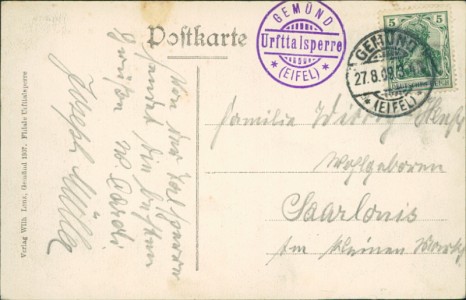 Postkarte
GEMÜND
Urfttalsperre
* (EIFEL) *
5 5
GEMÜND
27.8.09
* (EIFEL) *
Von der Talsperre
sendet die besten
Grüße
Joseph Müller
Familie
Wohlgeboren
Saarlouis
Am kleinen Markt
Verlag Wilh. Lenz, Gemünd 1907. Filiale Urfttalsperre